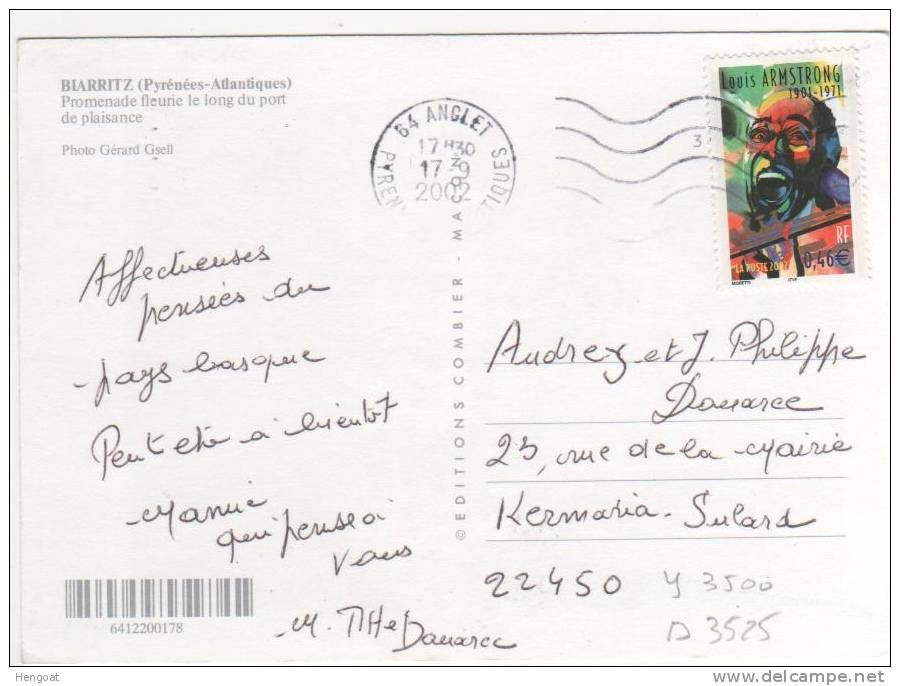 BIARRITZ (Pyrénées-Atlantiques)
Promenade fleurie le long du port
de plaisance
Photo Gérard Gsell
64 ANGLET
PYREN
TIQUES
17H30
17-9
2002
3
Louis ARMSTRONG
1901-1971
RF
0,46€
LA POSTE 2002
MORETTI
ITVF
Affectueuses
pensées du
pays basque
Peut etre à bientôt
Mamie
qui pense à
vous
M. THe Douarec
© EDITIONS COMBIER - MA
Audrey et J. Philippe
Douarec
23, rue de la Mairie
Kermaria-Sulard
22450
Y 3500
D 3525
6412200178
Hengoat
www.delcampe.net